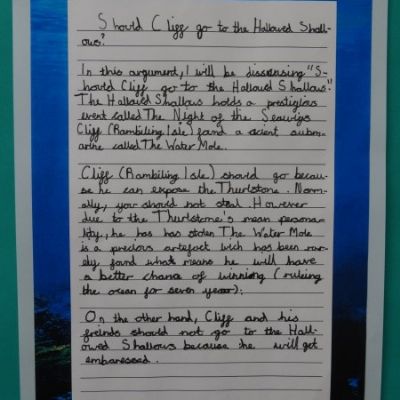 Should Cliff go to the Hallowed Shall-
ows?
In this argument, I will be disscusing "S-
hould Cliff go to the Hallowd Shallows".
The Hallowd Shallows holds a prestigios
event called The Night of the Seawigs
Cliff (Rambiling Isle) found a acient subm-
arine called The Water Mole.
Cliff (Rambiling Isle) should go becau-
se he can expose the Thurlstone. Norm-
ally, you should not steal. However
due to the Thurlstone's mean persona-
lity, he has has stolen The Water Mole
is a precious artefact wich has been rar-
ely found what means he will have
a better chance of winning (ruleing
the ocean for seven years).
On the other hand, Cliff and his
freinds should not go to the Hall-
owed Shallows because he will get
embaressed.